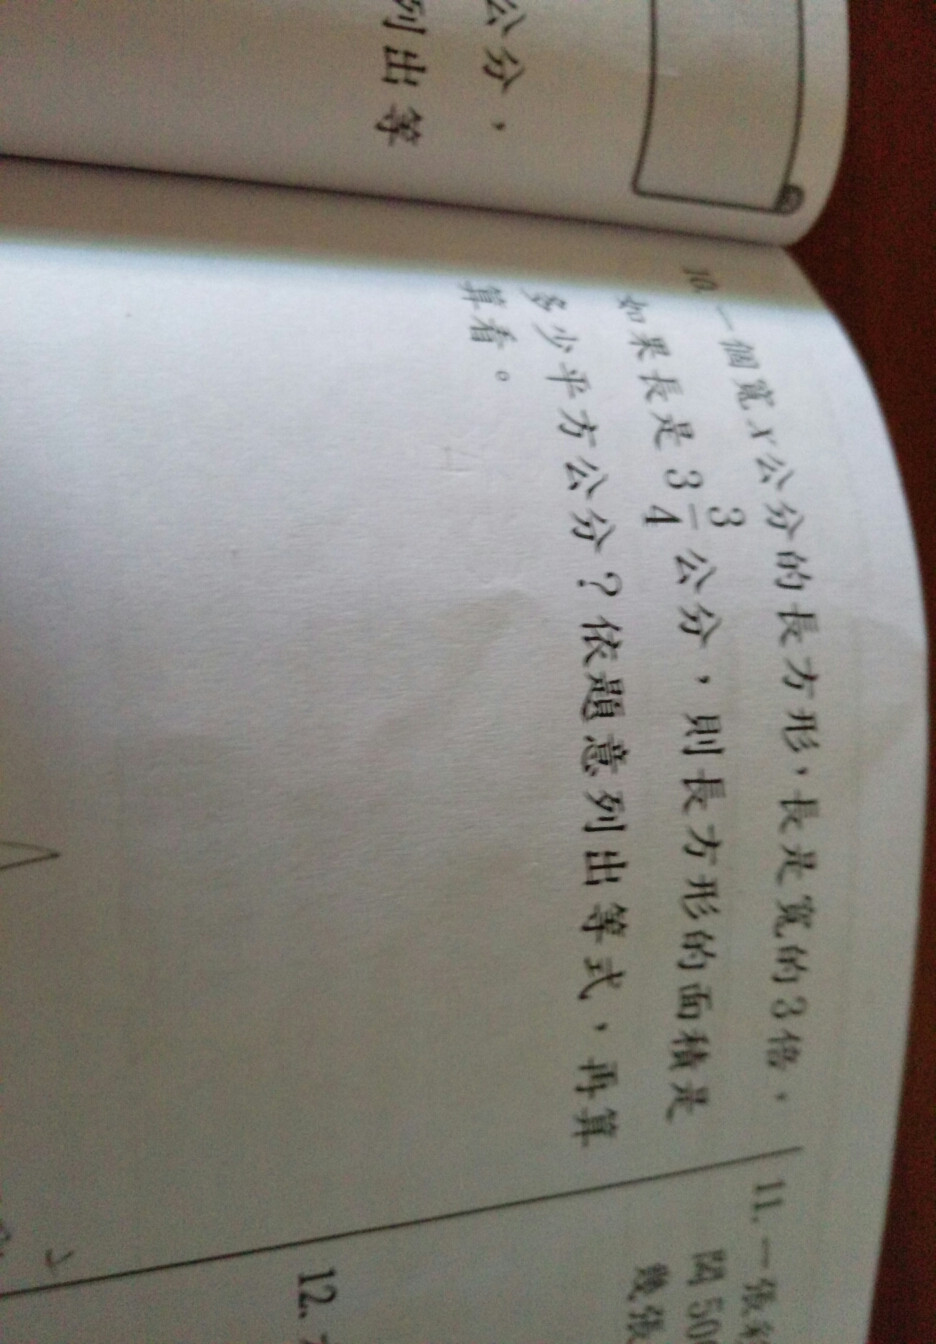 公分，
列出等
10. 一個寬x公分的長方形，長是寬的3倍，
如果長是3 3/4 公分，則長方形的面積是
多少平方公分？依題意列出等式，再算
算看。
11. 一張
闊50
幾張
12.